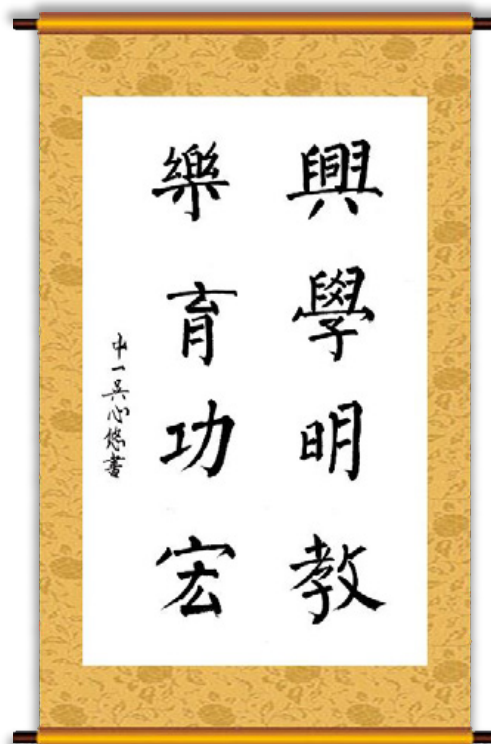 興學明教
樂育功宏
中一吳心悠書